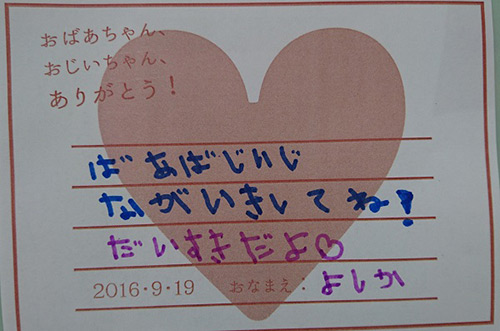 おばあちゃん、
おじいちゃん、
ありがとう！
ばあばじいじ
ながいきしてね！
だいすきだよ♡
2016・9・19 おなまえ：よしか